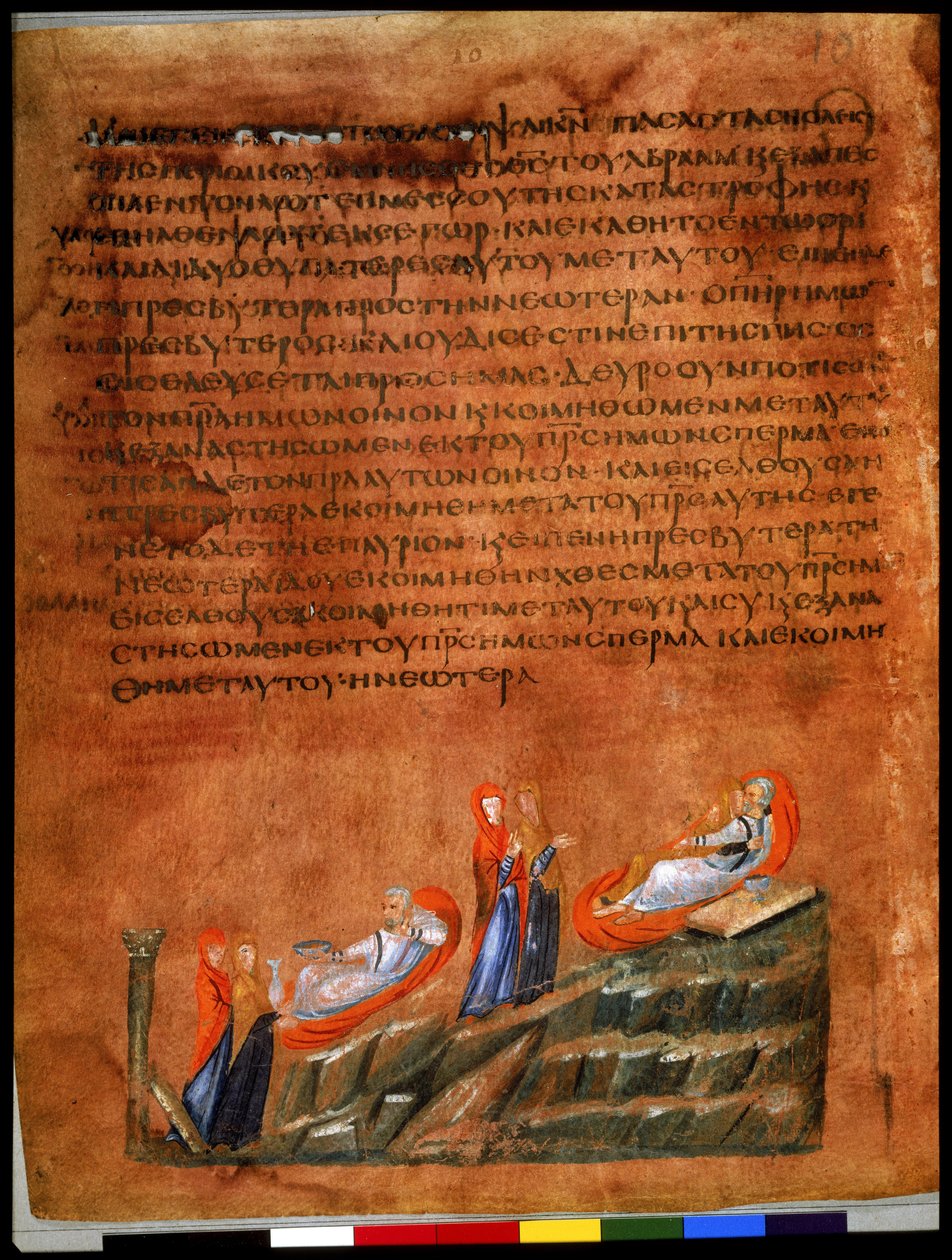 10 10
ΨΑΙΚ̅Ν̅ ΠΑϹΑϹΤΑϹΠΟΛΕΙϹ
ΤΗϹΠΕΡΙΟΙΚΟΥ ΟΘ̅Ϲ̅ΤΟΥΑΒΡΑΑΜΚΕΕΞΑΠΕϹ
ΤΙΛΕΝΤΟΝΛΩΤΕΚΜΕϹΟΥΤΗϹΚΑΤΑϹΤΡΟΦΗϹΚ
ΑΝΗΛΘΕΝΛΩΤΕΚϹΕΓΩΡ·ΚΑΙΕΚΑΘΗΤΟΕΝΤΩΟΡΙ
ΚΑΙΑΙΔΥΟΘΥΓΑΤΕΡΕϹΑΥΤΟΥΜΕΤΑΥΤΟΥ·ΕΙΠΕΝΔΕ
ΗΠΡΕϹΒΥΤΕΡΑΠΡΟϹΤΗΝΝΕΩΤΕΡΑΝ·ΟΠ̅Η̅Ρ̅ΗΜΩΝ
ΠΡΕϹΒΥΤΕΡΟϹ·ΚΑΙΟΥΔΙϹΕϹΤΙΝΕΠΙΤΗϹΓΗϹΟϹ
ΕΙϹΕΛΕΥϹΕΤΑΙΠΡΟϹΗΜΑϹ·ΔΕΥΡΟΟΥΝΠΟΤΙϹΩ
ΤΟΝΠ̅Ρ̅Α̅ΗΜΩΝΟΙΝΟΝΚΚΟΙΜΗΘΩΜΕΝΜΕΤΑΥΤΟΥ
ΚΕΞΑΝΑϹΤΗϹΩΜΕΝΕΚΤΟΥΠ̅Ρ̅Ϲ̅ΗΜΩΝϹΠΕΡΜΑ·ΕΠΟ
ΤΙϹΑΝΔΕΤΟΝΠΡΑΑΥΤΩΝΟΙΝΟΝ·ΚΑΙΕΙϹΕΛΘΟΥϹΑΗ
ΠΡΕϹΒΥΤΕΡΑΕΚΟΙΜΗΘΗΜΕΤΑΤΟΥΠ̅Ρ̅Ϲ̅ΑΥΤΗϹ·ΕΓΕ
ΝΕΤΟΔΕΤΗΕΠΑΥΡΙΟΝ·ΚΕΕΙΠΕΝΗΠΡΕϹΒΥΤΕΡΑΤΗ
ΝΕΩΤΕΡΑΙΔΟΥΕΚΟΙΜΗΘΗΝΧΘΕϹΜΕΤΑΤΟΥΠ̅Ρ̅Ϲ̅ΗΜ
ΕΙϹΕΛΘΟΥϹΑΚΟΙΜΗΘΗΤΙΜΕΤΑΥΤΟΥΚΑΙϹΥΚΕΞΑΝΑ
ϹΤΗϹΩΜΕΝΕΚΤΟΥΠ̅Ρ̅Ϲ̅ΗΜΩΝϹΠΕΡΜΑ ΚΑΙΕΚΟΙΜΗ
ΘΗΜΕΤΑΥΤΟΥ·ΗΝΕΩΤΕΡΑ